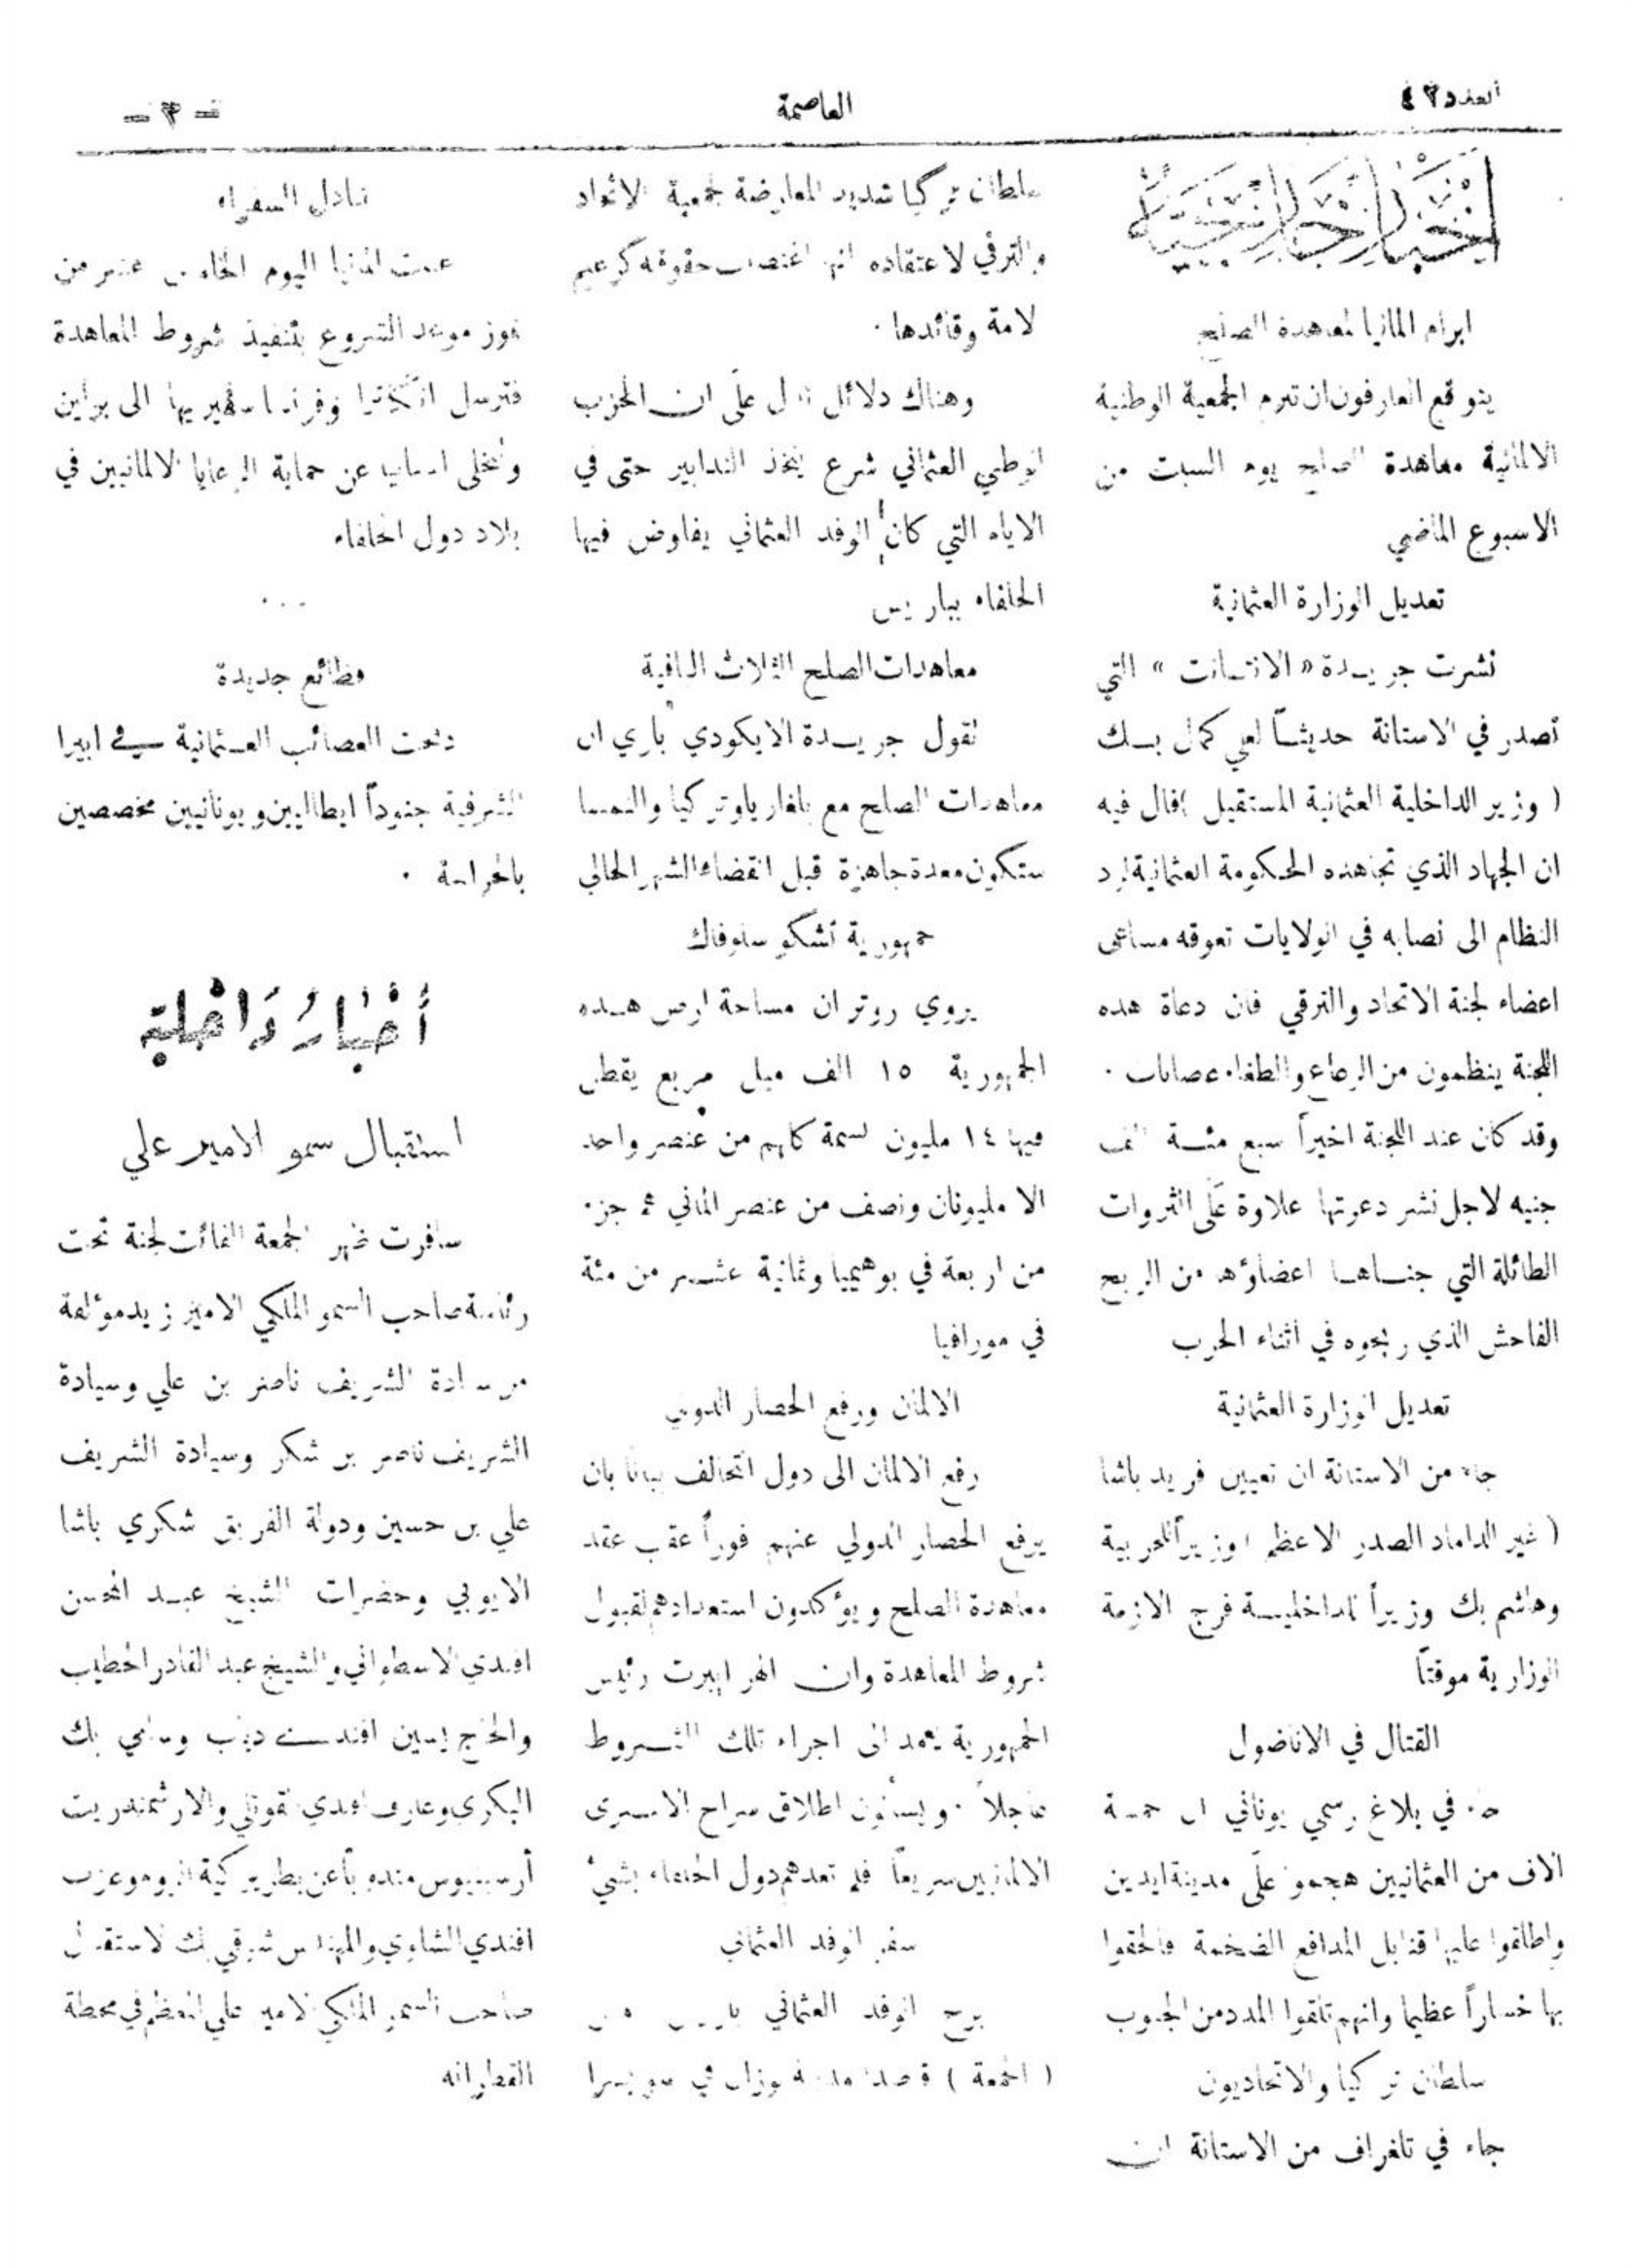 العدد ٤٢
العاصمة
— ٣ —
ابرام المانيا لمعاهدة الصلح
يتوقع العارفون ان تبرم الجمعية الوطنية
الالمانية معاهدة الصلح يوم السبت من
الاسبوع الماضي
تعديل الوزارة العثمانية
نشرت جريدة « الانتانت » التي
تصدر في الاستانة حديثاً لعلي كمال بك
( وزير الداخلية العثمانية المستقيل ) قال فيه
ان الجهاد الذي تجاهده الحكومة العثمانية لرد
النظام الى نصابه في الولايات تعوقه مساعى
اعضاء لجنة الاتحاد والترقي فان دعاة هذه
اللجنة ينظمون من الرعاع والطغاء عصابات .
وقد كان عند اللجنة اخيراً سبع مئة الف
جنيه لاجل نشر دعوتها علاوة على الثروات
الطائلة التي جناها اعضاؤها من الربح
الفاحش الذي ربحوه في اثناء الحرب
تعديل الوزارة العثمانية
جاء من الاستانة ان تعيين فريد باشا
( غير الداماد الصدر الاعظم ) وزيراً للحربية
وهاشم بك وزيراً للداخلية فرج الازمة
الوزارية موقتاً
القتال في الاناضول
جاء في بلاغ رسمي يوناني ان خمسة
الاف من العثمانيين هجموا على مدينة ايدين
واطلقوا عليها قنابل المدافع الضخمة فالحقوا
بها خساراً عظيما وانهم تلقوا المدد من الجنوب
سلطان تركيا والاتحاديون
جاء في تلغراف من الاستانة ان
سلطان تركيا شديد المعارضة لجمعية الاتحاد
والترقي لاعتقاده انها اغتصبت حقوقه كزعيم
لامة وقائدها .
وهناك دلائل تدل على ان الحزب
الوطني العثماني شرع يتخذ التدابير حتى في
الايام التي كان الوفد العثماني يفاوض فيها
الحلفاء بباريس
معاهدات الصلح الثلاث الباقية
تقول جريدة الايكودي باري ان
معاهدات الصلح مع بلغاريا وتركيا والنمسا
ستكون معدة جاهزة قبل انقضاء الشهر الحالي
جمهورية تشكو سلوفاك
يروي روتر ان مساحة ارض هذه
الجمهورية ١٥ الف ميل مربع يقطن
فيها ١٤ مليون نسمة كلهم من عنصر واحد
الا مليونان ونصف من عنصر الماني هم جزء
من اربعة في بوهيميا وثمانية عشر من مئة
في مورافيا
الالمان ورفع الحصار الدولي
رفع الالمان الى دول التحالف بيانا بان
يرفع الحصار الدولي عنهم فوراً عقب عقد
معاهدة الصلح ويؤكدون استعدادهم لقبول
شروط المعاهدة وان الهر ايبرت رئيس
الجمهورية يعمد الى اجراء تلك الشروط
عاجلاً . ويسألون اطلاق سراح الاسرى
الالمانيين سريعاً فلم تعدهم دول الحلفاء بشيء
سفر الوفد العثماني
برح الوفد العثماني باريس
( الجمعة ) قاصدا مدينة لوزان في سويسرا
تبادل السفراء
عينت المانيا اليوم الخامس عشر من
تموز موعد الشروع بتنفيذ شروط المعاهدة
فترسل انكلترا وفرنسا سفيريها الى برلين
وتتخلى اسبانيا عن حماية الرعايا الالمانيين في
بلاد دول الحلفاء
. . .
فظائع جديدة
ذبحت العصائب العثمانية في
الشرقية جنوداً ايطاليين ويونانيين مخصصين
بالحراسة .
أخبار داخلية
استقبال سمو الامير علي
سافرت ظهر الجمعة الفائت لجنة تحت
رئاسة صاحب السمو الملكي الامير زيد مؤلفة
من سيادة الشريف ناصر بن علي وسيادة
الشريف ناصر بن شكر وسيادة الشريف
علي بن حسين ودولة الفريق شكري باشا
الايوبي وحضرات الشيخ عبد المحسن
افندي الاسطواني والشيخ عبد القادر الخطيب
والحاج يسين افندي دياب وسامي بك
البكري وعارف افندي قوتلي والارشمندريت
أرسينيوس مندوباً عن بطريركية الروم وعزت
افندي الشاوي والمهندس شوقي بك لاستقبال
صاحب السمو الملكي الامير علي المعظم في محطة
القطرانه